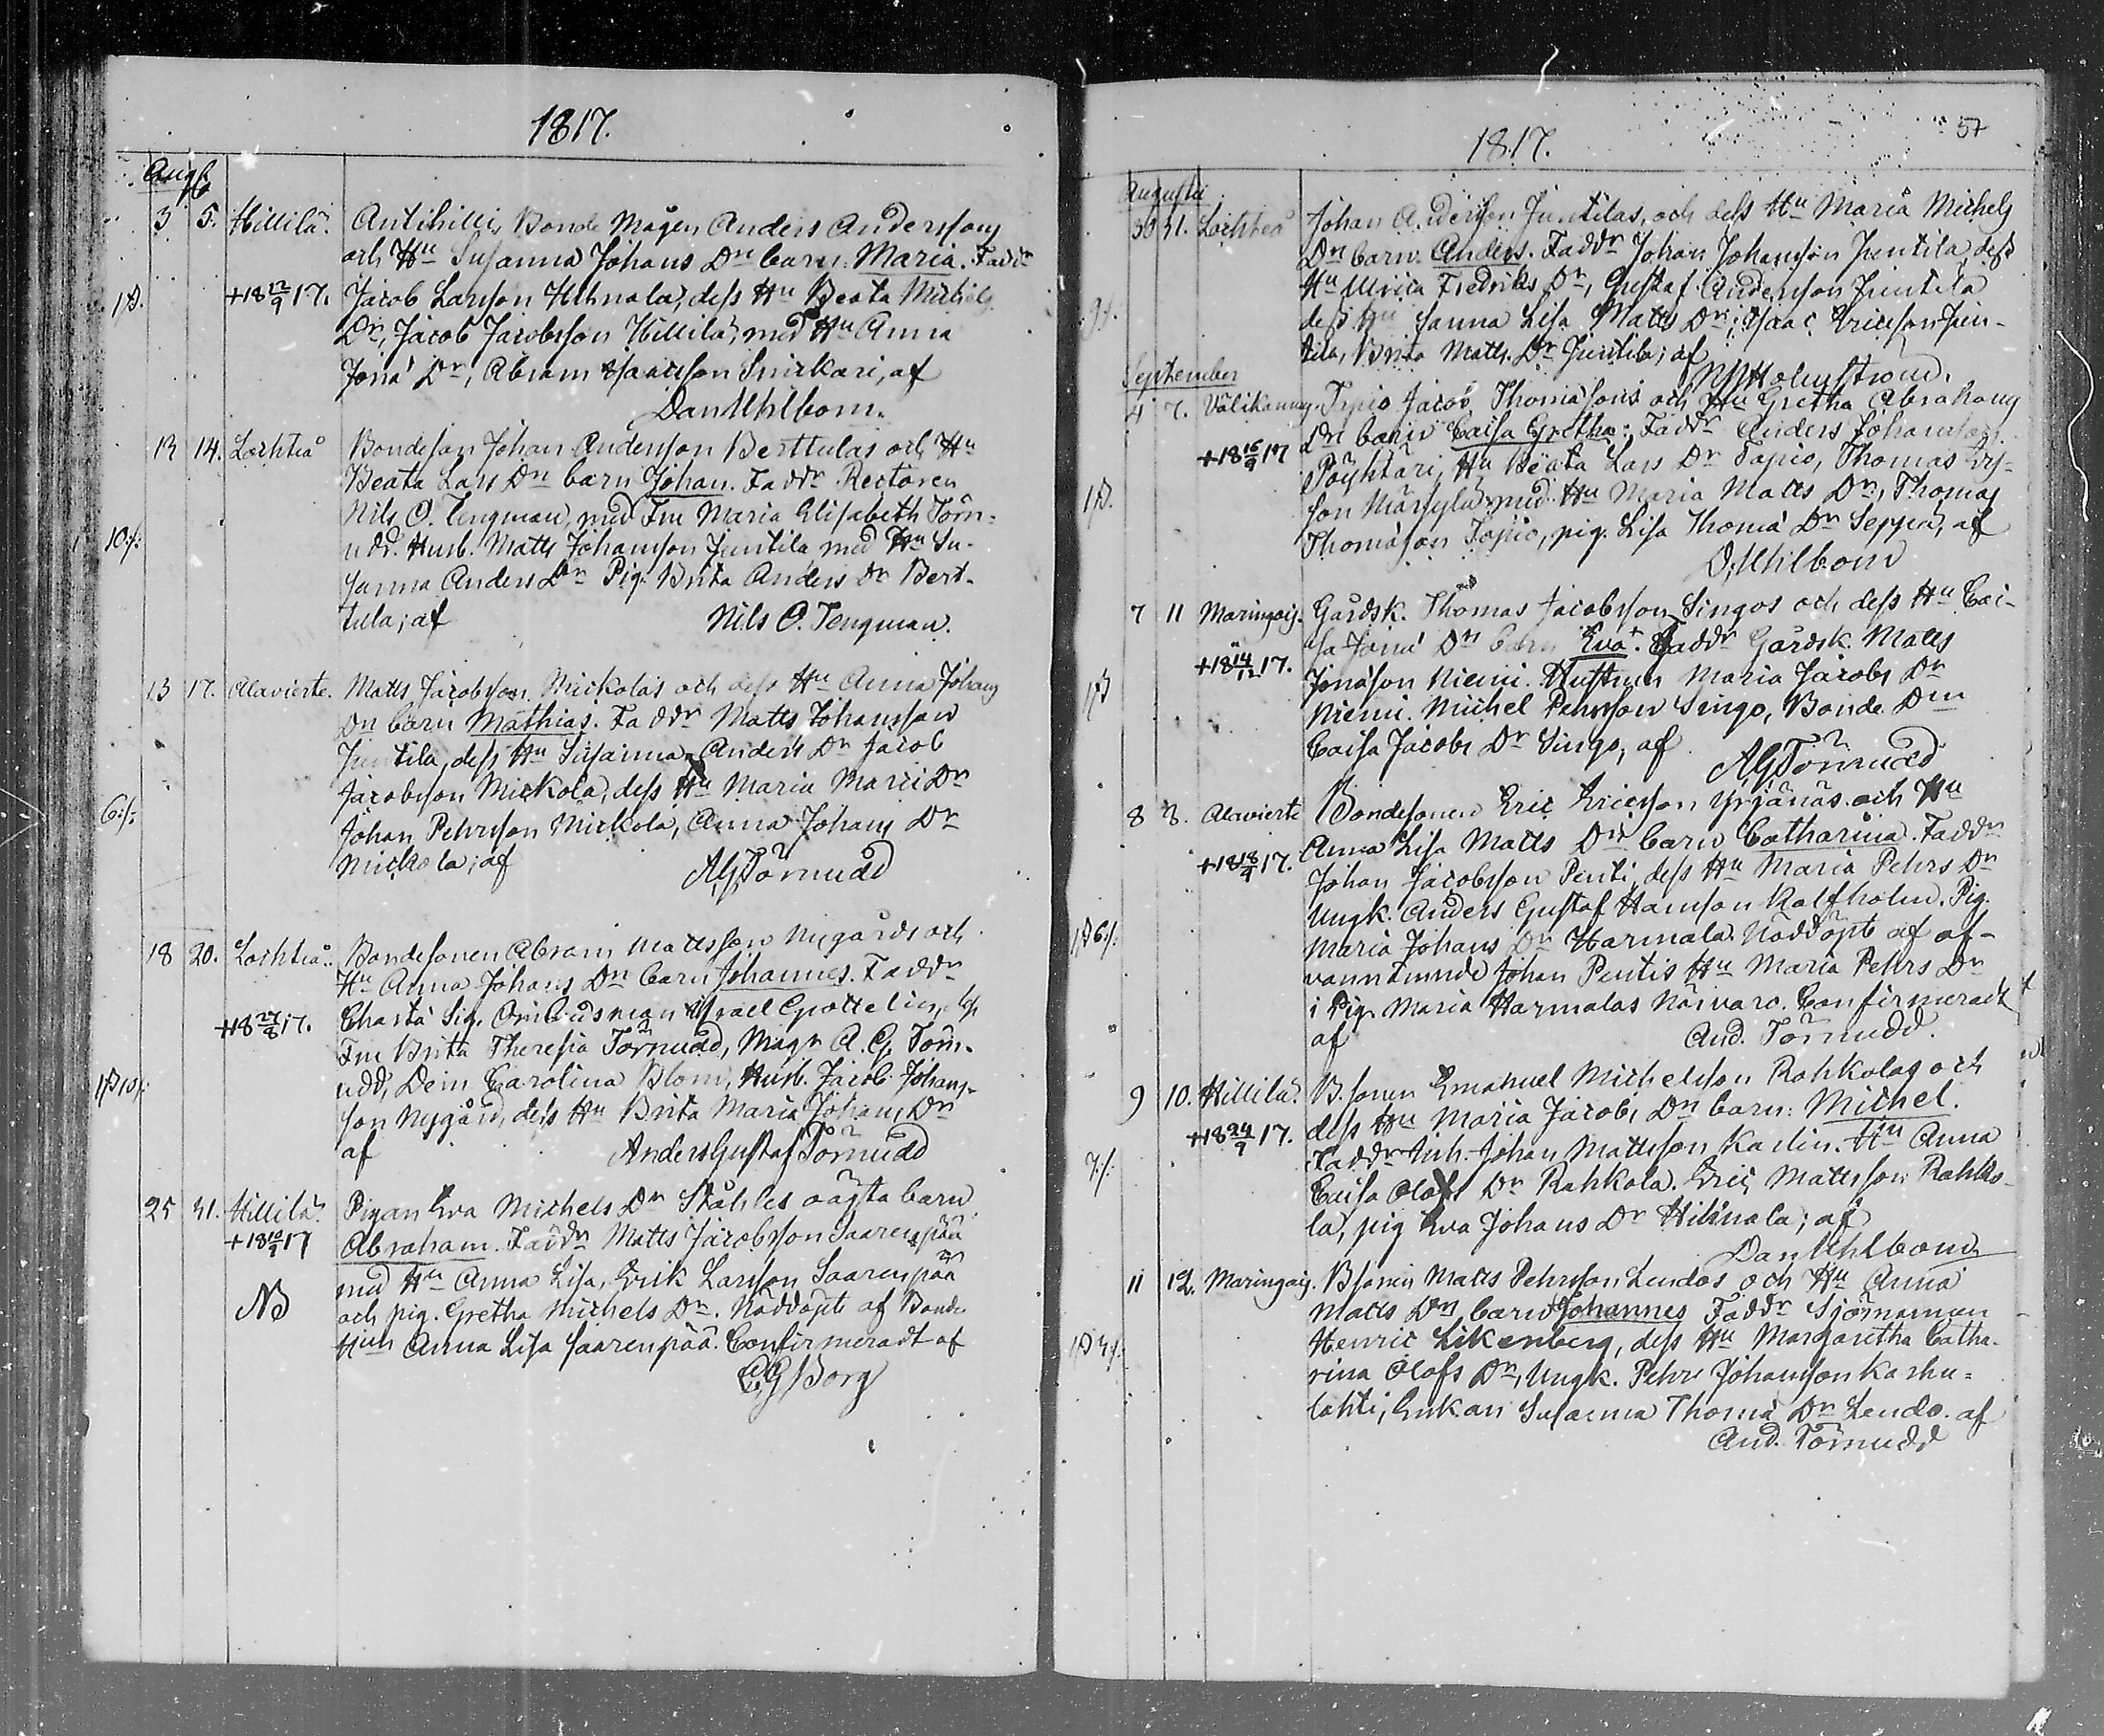 1817.
Aug:
3 5. Hillilä. Antihilli, Bonde Mågen Anders Anderssons
och Hu Susanna Johans Dr barn: Maria. Faddr
1ß. +18 12/9 17. Jacob Larsson Hihnala, dess Hu Beata Michels
Dr, Jacob Jacobsson Hillilä, med Hu Anna
Jona Dr, Abram Isaacsson Snickari, af
Dan Uhlbom.
13 14. Lochteå Bondeson Johan Andersson Berttulas och Hu
Beata Lars Dr barn Johan. Faddr Rectoren
Nils O. Tengman, med Fru Maria Elisabeth Törn-
10:/: udd. Husb. Matts Johansson Juntila med Hu Su-
sanna Anders Dr Pig. Brita Anders Dr Bert-
tula; af Nils O. Tengman.
13 17. Alavierte. Matts Jacobsson Mickolas och dess Hu Anna Johans
Dr barn Mathias. Faddr Matts Johansson
Juntila, dess Hu Susanna Anders Dr Jacob
Jacobsson Mickola, dess Hu Maria Marci Dr
6:/: Johan Pehrsson Mickola, Anna Johans Dr
Mickola; af AGTörnudd
18 20. Lochteå. Bondesonen Abram Mattsson Nygårds och
Hu Anna Johans Dr barn Johannes. Faddr
+18 27/8 17. Charta Sig. Ombudsman Israel Gottelin, dess
Fru Brita Theresia Törnudd, Magr A. G. Törn-
1ß 10/: udd, Dem Carolina Blom, Husb. Jacob Johans-
son Nygård, dess Hu Brita Maria Johans Dr
af Anders Gustaf Törnudd
25 31. Hillilä. Pigan Eva Michels Dr Ståhles oägta barn
+18 10/9 17 Abraham. Faddr Matts Jacobsson Saarenpää
med Hu Anna Lisa, Erik Larsson Saarenpää
NB och pig. Gretha Michels Dr. Nöddöpt af Bonde
Hun Anna Lisa Saarenpää. Confirmeradt af
CG Borg
57
1817.
Augusti
30 31. Lochteå Johan Andersson Juntilas, och dess Hu Maria Michels
Dr barn: Anders. Faddr Johan Johansson Juntila, dess
Hu Ulrica Fredriks Dr, Gustaf Andersson Juntila
9/: dess Hu Sanna Lisa Matts Dr; Isaac Ericsson Jun-
tila, Brita Matts Dr Juntila; af
Holmström.
September
4 7. Välikannus. Tapio Jacob Thomasons och Hu Gretha Abrahams
Dr barn Caisa Gretha: Faddr Anders Johansson
+18 16/9 17 Pöyhtäri, Hu Beata Lars Dr Tapio, Thomas Ers-
1ß. son Märsylä med Hu Maria Matts Dr, Thomas
Thomason Tapio, pig. Lisa Thoma Dr Seppä, af
D. Uhlbom
7 11 Maringais. Gårdsk. Thomas Jacobsson Singos och dess Hu Cai-
sa Jona Dr barn Eva. Faddr Gårdsk. Matts
+18 14/12 17. Jonason Niemi. Hustrun Maria Jacobs Dr
1ß Niemi. Michel Pehrsson Singo, Bonde Drn
Caisa Jacobs Dr Singo, af
AGTörnudd
8 8. Alavierte Bondesonen Eric Ericsson Yrjänäs och Hu
Anna Lisa Matts Dr barn Catharina. Faddr
+18 18/9 17. Johan Jacobsson Penti, dess Hu Maria Pehrs Dr
Ungk. Anders Gustaf Hansson Kalfholm. Pig.
1ß 6/: Maria Johans Dr Harmala. Nöddöpt af of-
vannämnde Johan Pentis Hu Maria Pehrs Dr
i Pig. Maria Harmalas närvaro. Confirmeradt
af And. Törnudd.
9 10. Hillilä. B. sonen Emanuel Michelsson Rahkolas och
dess Hu Maria Jacobs Dr barn: Michel.
+18 24/9 17. Faddr Inh. Johan Mattsson Karlin. Hu Anna
7/: Caisa Olofs Dr Rahkola. Eric Mattsson Rahko-
la, pig Eva Johans Dr Hihnala; af
Dan Uhlbom
11 12. Maringais. Bsonen Matts Pehrsson Lendos och Hu Anna
Matts Dr barn Johannes Faddr Sjömannen
Henric Likenberg, dess Hu Margaretha Catha-
1ß 4/: rina Olofs Dr, Ungk. Pehr Johansson Karhu-
lahti, Enkan Susanna Thoma Dr Lendo. af
And. Törnudd